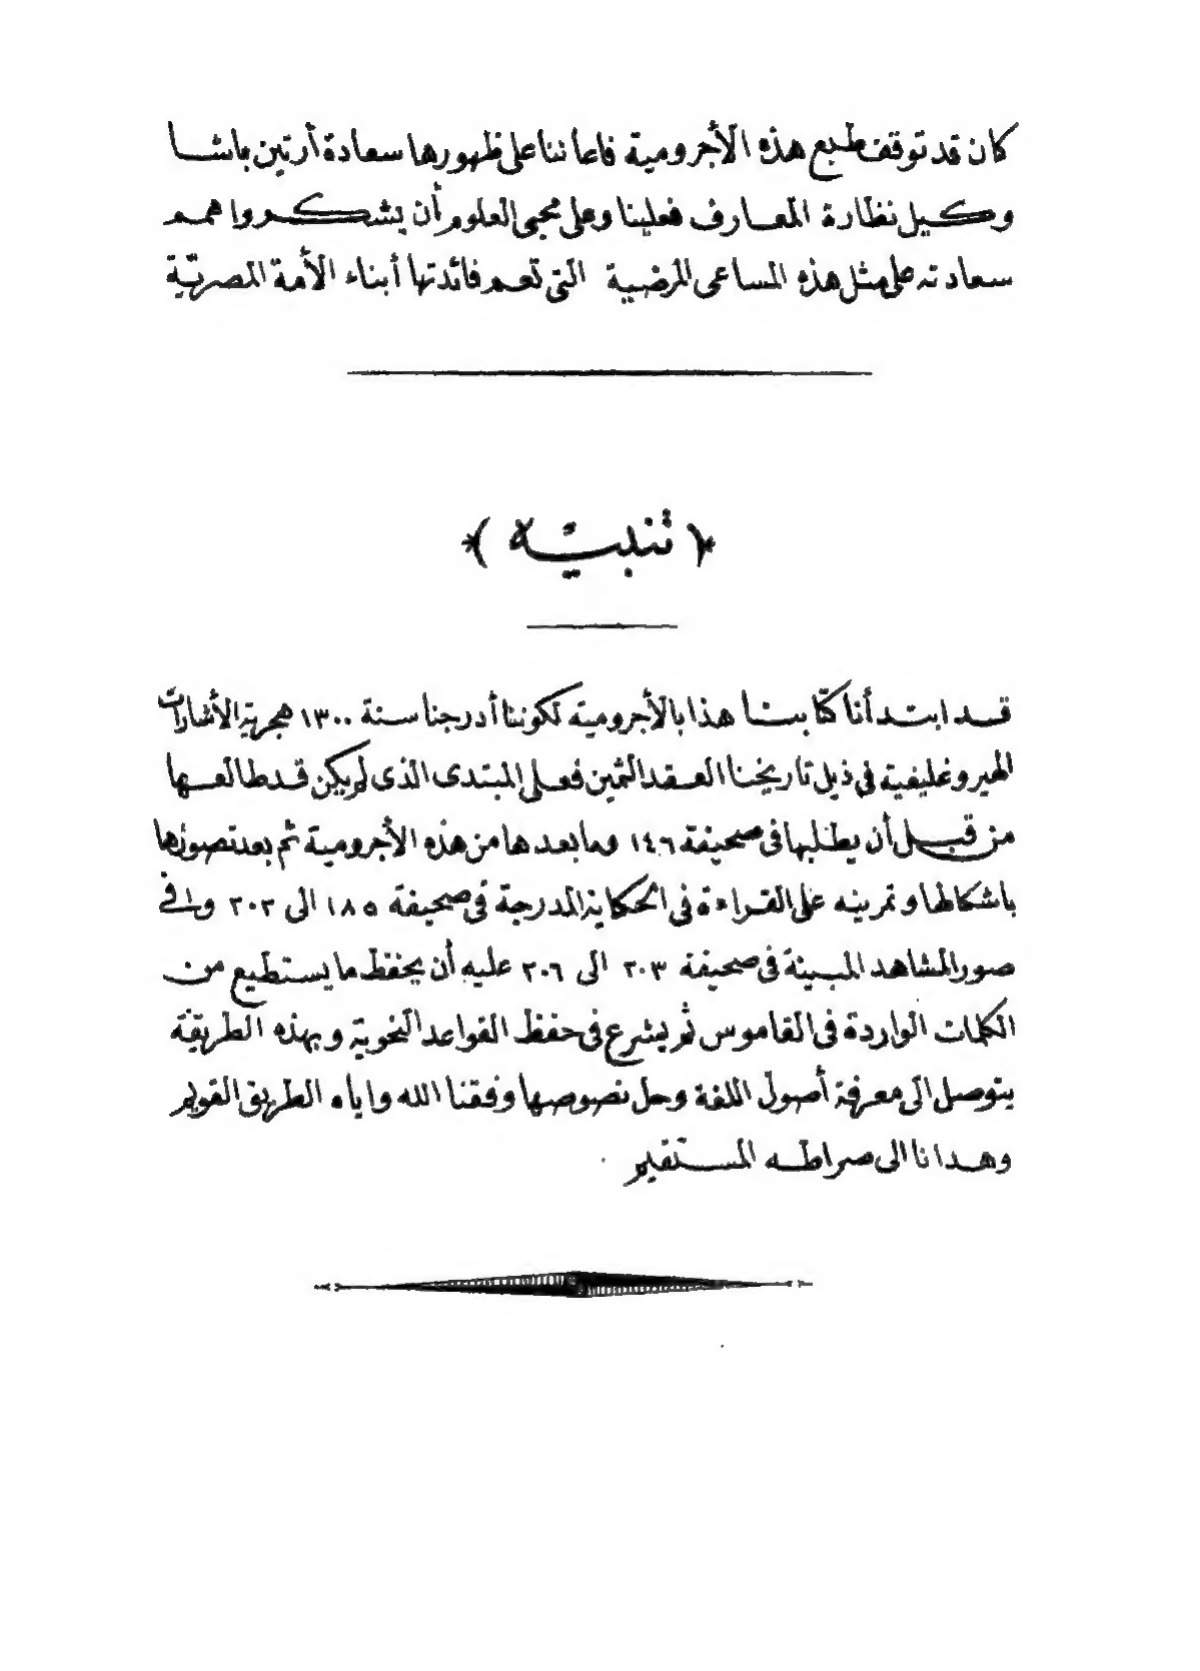 كان قد توقف طبع هذه الأجرومية فاعاننا على ظهورها سعادة أرتين باشا
وكيل نظارة المعارف فعلينا وعلى محبى العلوم أن يشكروا همم
سعادته على مثل هذه المساعى المرضية التى تعم فائدتها أبناء الأمة المصريّة
﴿ تنبيه ﴾
قد ابتدأنا كتابنا هذا بالأجرومية لكوننا أدرجنا سنة ١٣٠٠ هجرية الأشارات
الهيروغليفية فى ذيل تاريخنا العقد الثمين فعلى المبتدى الذى لم يكن قد طالعها
من قبل أن يطلبها فى صحيفة ١٤٦ وما بعدها من هذه الأجرومية ثم بعد تصورها
باشكالها وتمرينه على القراءة فى الحكاية المدرجة فى صحيفة ١٨٥ الى ٢٠٢ وفى
صور المشاهد المبينة فى صحيفة ٢٠٣ الى ٢٠٦ عليه أن يحفظ ما يستطيع من
الكلمات الواردة فى القاموس ثم يشرع فى حفظ القواعد النحوية وبهذه الطريقة
يتوصل الى معرفة أصول اللغة وحل نصوصها وفقنا الله واياه الطريق القويم
وهدانا الى صراطه المستقيم